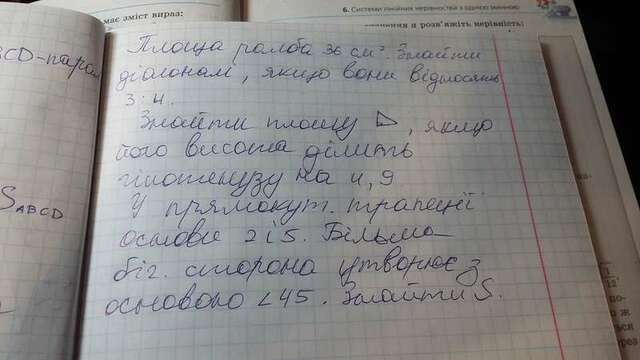 має зміст вираз:
6. Системи лінійних нерівностей з однією змінною
розв'яжіть нерівність:
BCD-парал
SABCD
Площа ромба 36 см². Знайти
діагоналі, якщо вони відносять
3:4.
Знайти площу ◺, якщо
його висота ділить
гіпотенузу на 4,9
У прямокут. трапеції
основи 2 і 5. Більша
біг. сторона утворює з
основою ∠45. Знайти S.